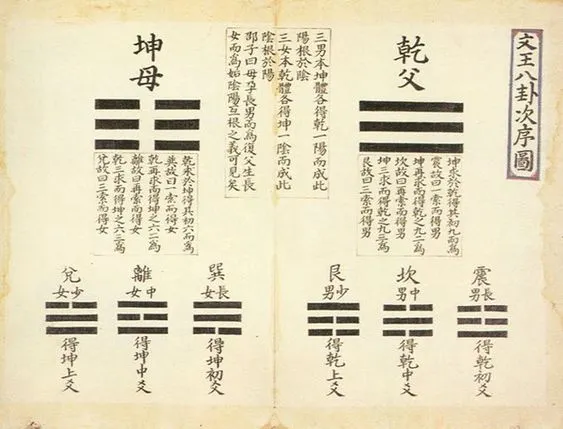 文王八卦次序圖
乾父
坤求於乾得其初九而為
震故曰一索而得男
坤再求而得乾之九二為
坎故曰再索而得男
坤三求而得乾之九三為
艮故曰三索而得男
三男本坤體各得乾一陽而成此
陽根於陰
三女本乾體各得坤一陰而成此
陰根於陽
邵子曰母孕長男而為復父生長
女而為姤陰陽互根之義可見矣
坤母
乾求於坤得其初六而為
巽故曰一索而得女
乾再求而得坤之六二為
離故曰再索而得女
乾三求而得坤之六三為
兌故曰三索而得女
震
長男
得乾初爻
坎
中男
得乾中爻
艮
少男
得乾上爻
巽
長女
得坤初爻
離
中女
得坤中爻
兌
少女
得坤上爻